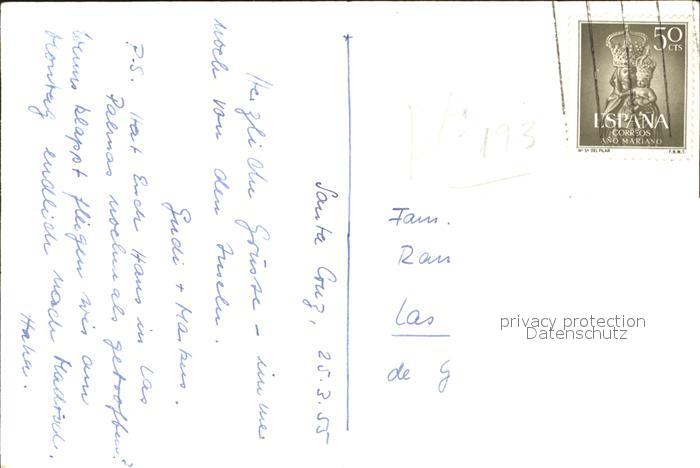 Santa Cruz, 25.3.55
Herzliche Grüsse – immer
noch von den Inseln.
Gudi + Markus.
P.S. Hat Euch Hans in Las
Palmas nochmals getroffen?
Wenns klappt fliegen wir am
Montag endlich nach Madrid.
Haha.
193
Fam.
Ran
Las
de G
50
CTS
ESPAÑA
CORREOS
AÑO MARIANO
Nª Sª DEL PILAR
F.N.M.T.
privacy protection
Datenschutz